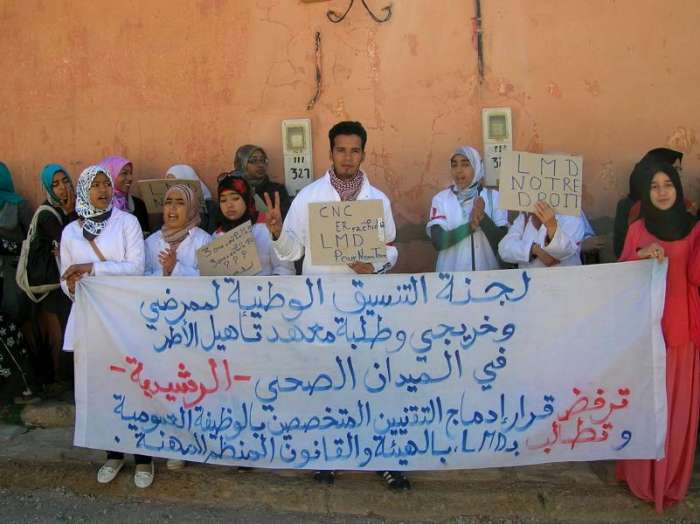 LMD
NOTRE
DROIT
CNC
ERRACHIDIA
LMD
Pour Nous Tous
327
لجنة التنسيق الوطنية لممرضي
وخريجي وطلبة معهد تأهيل الأطر
في الميدان الصحي - الرشيدية -
ترفض قرار إدماج التقنيين المتخصصين بالوظيفة العمومية
وتطالب بـ LMD، بالهيئة والقانون المنظم للمهنة .